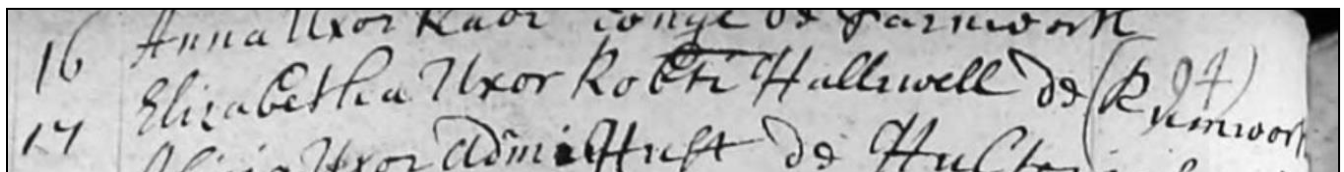 16 Anna Uxor Radi Longe de Farnworth
Elizabetha Uxor Robti Halliwell de Rumwort (94)
17 Uxor Admi Hust de Hulton